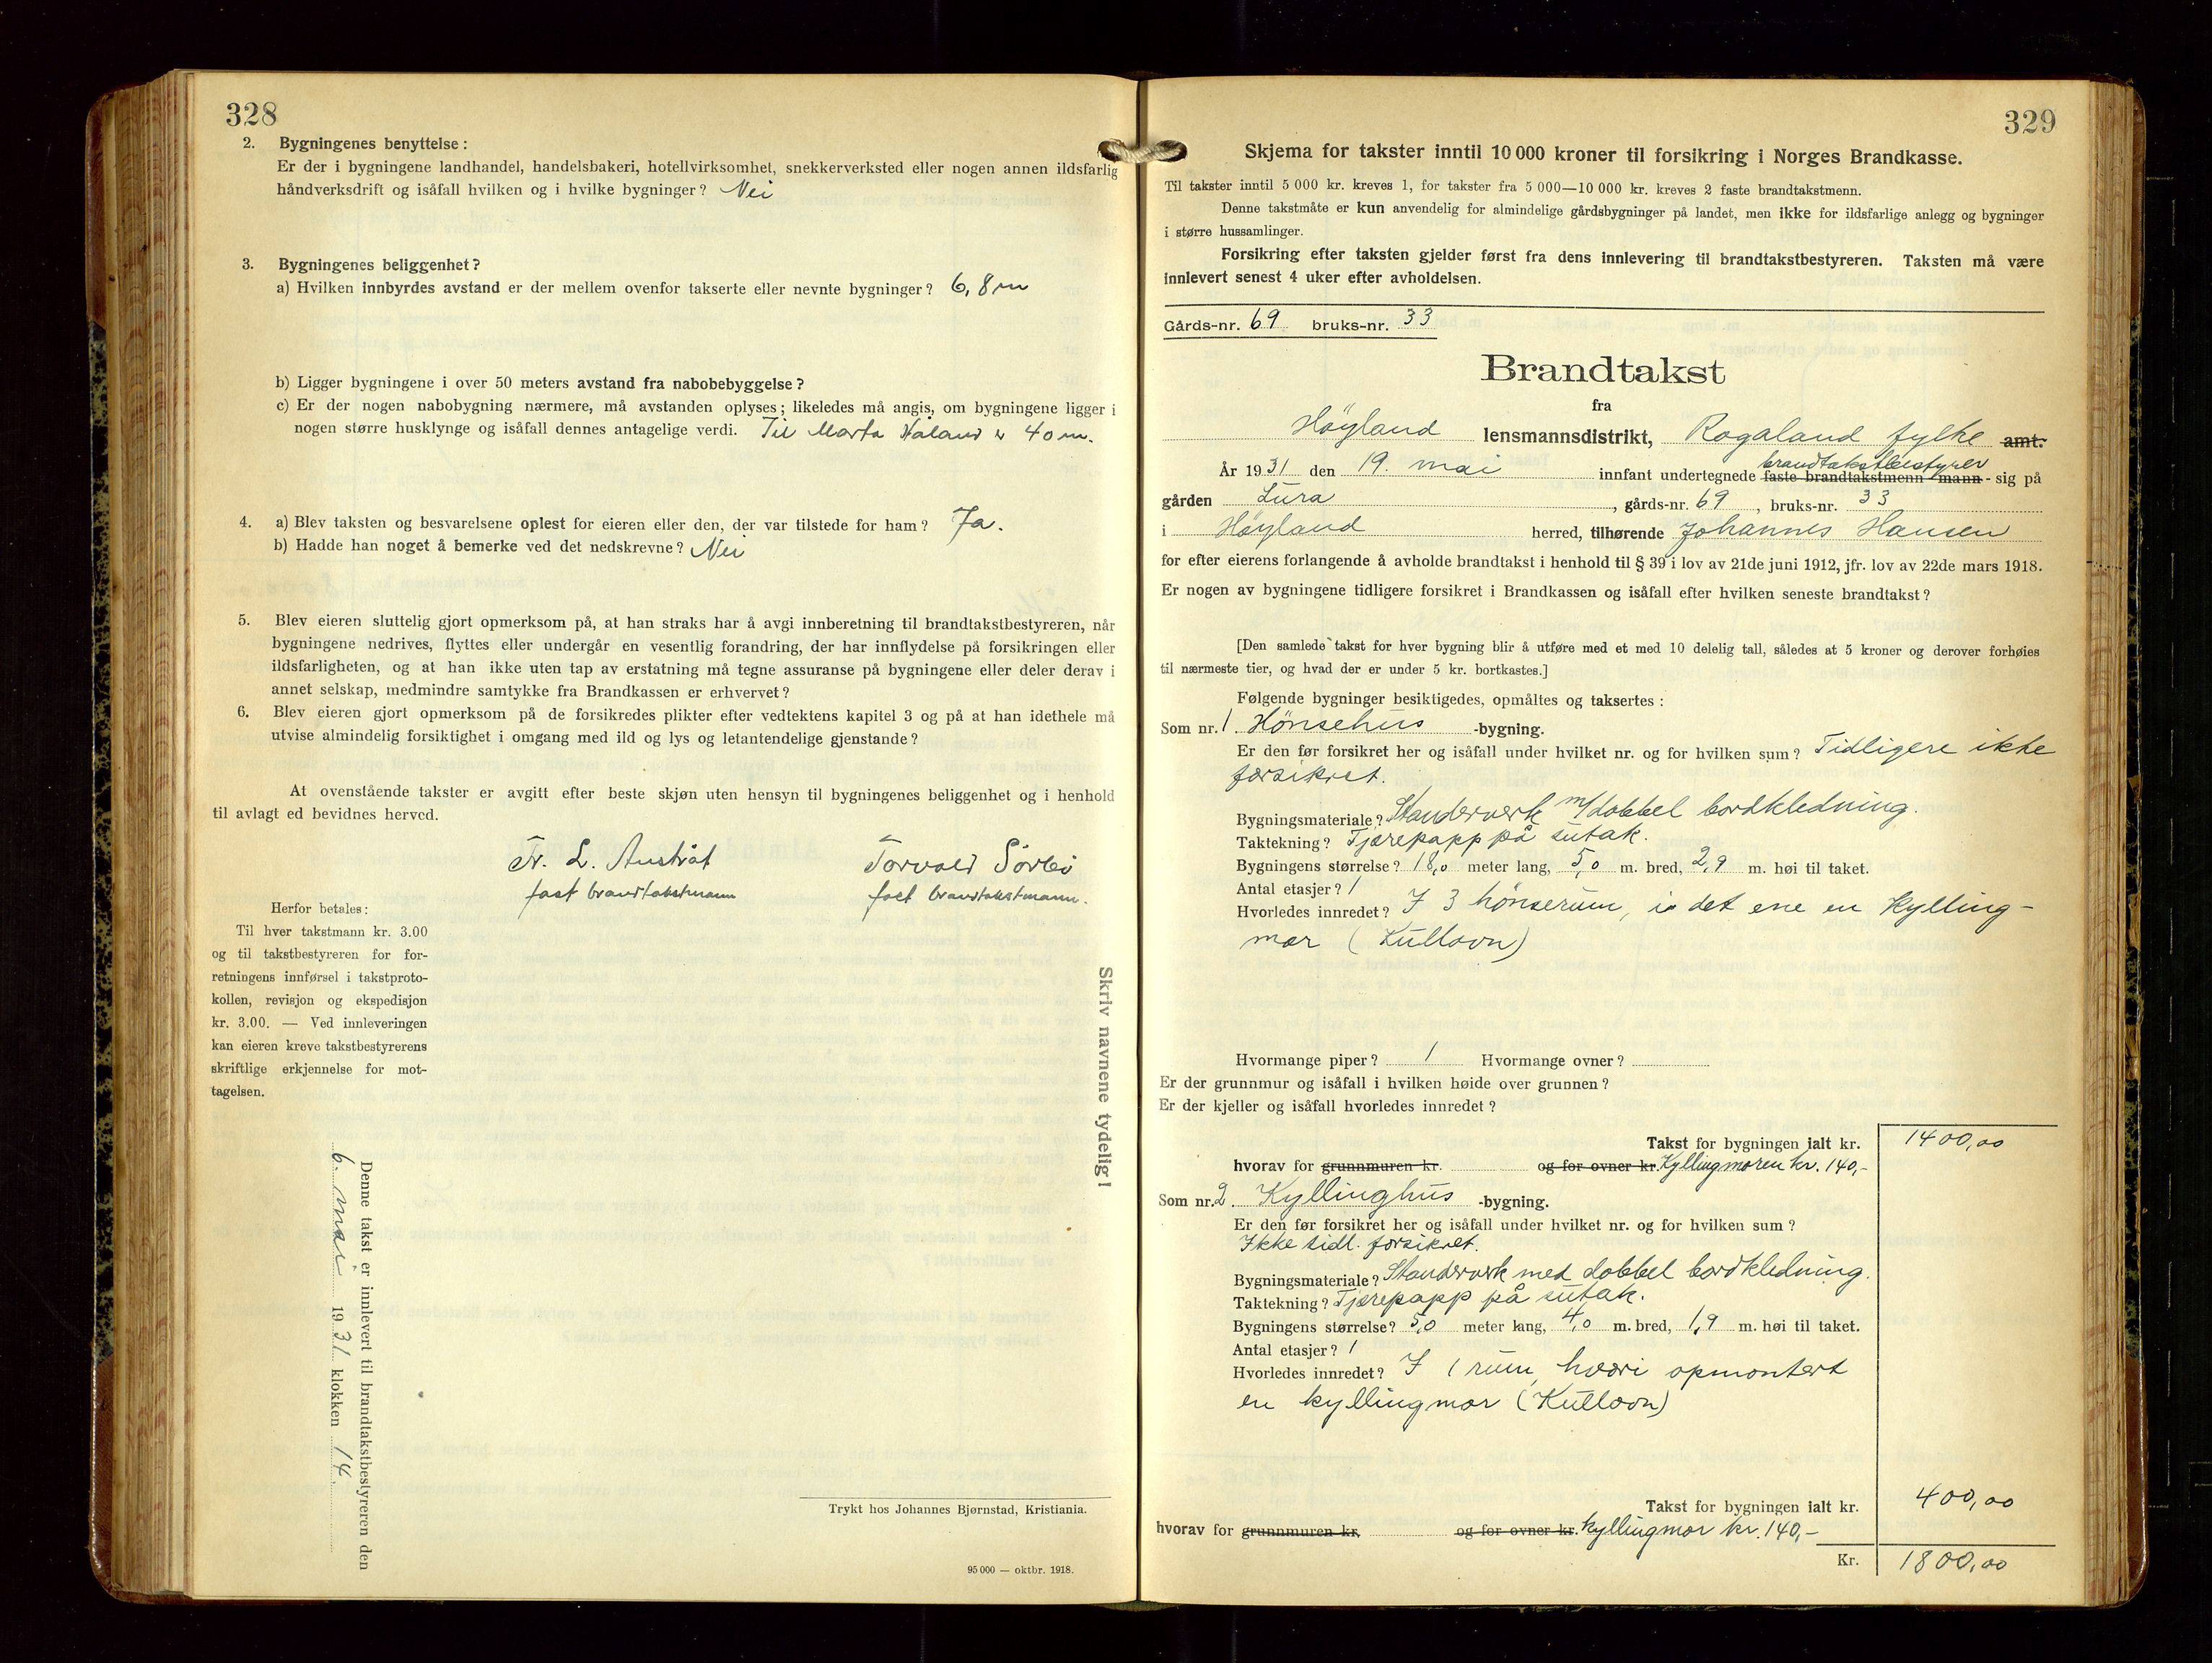 328
2. Bygningenes benyttelse:
Er der i bygningene landhandel, handelsbakeri, hotellvirksomhet, snekkerverksted eller nogen annen ildsfarlig
håndverksdrift og isåfall hvilken og i hvilke bygninger? Nei
3. Bygningenes beliggenhet?
a) Hvilken innbyrdes avstand er der mellem ovenfor takserte eller nevnte bygninger? 6,8 m
b) Ligger bygningene i over 50 meters avstand fra nabobebyggelse?
c) Er der nogen nabobygning nærmere, må avstanden oplyses; likeledes må angis, om bygningene ligger i
nogen større husklynge og isåfall dennes antagelige verdi. Til Marta Håland er 40 m.
4. a) Blev taksten og besvarelsene oplest for eieren eller den, der var tilstede for ham? Ja.
b) Hadde han noget å bemerke ved det nedskrevne? Nei
5. Blev eieren sluttelig gjort opmerksom på, at han straks har å avgi innberetning til brandtakstbestyreren, når
bygningene nedrives, flyttes eller undergår en vesentlig forandring, der har innflydelse på forsikringen eller
ildsfarligheten, og at han ikke uten tap av erstatning må tegne assuranse på bygningene eller deler derav i
annet selskap, medmindre samtykke fra Brandkassen er erhvervet?
6. Blev eieren gjort opmerksom på de forsikredes plikter efter vedtektens kapitel 3 og på at han idethele må
utvise almindelig forsiktighet i omgang med ild og lys og letantendelige gjenstande?
At ovenstående takster er avgitt efter beste skjøn uten hensyn til bygningenes beliggenhet og i henhold
til avlagt ed bevidnes herved.
Fr. L. Austråt Torvald Sörbö
fast brandtakstmann fast brandtakstmann.
Herfor betales:
Til hver takstmann kr. 3.00
og til takstbestyreren for for-
retningens innførsel i takstproto-
kollen, revisjon og ekspedisjon
kr. 3.00. — Ved innleveringen
kan eieren kreve takstbestyrerens
skriftlige erkjennelse for mot-
tagelsen.
Skriv navnene tydelig!
Denne takst er innlevert til brandtakstbestyreren den
6. mai 1931 klokken 14.
Trykt hos Johannes Bjørnstad, Kristiania.
95 000 — oktbr. 1918.
329
Skjema for takster inntil 10 000 kroner til forsikring i Norges Brandkasse.
Til takster inntil 5 000 kr. kreves 1, for takster fra 5 000—10 000 kr. kreves 2 faste brandtakstmenn.
Denne takstmåte er kun anvendelig for almindelige gårdsbygninger på landet, men ikke for ildsfarlige anlegg og bygninger
i større hussamlinger.
Forsikring efter taksten gjelder først fra dens innlevering til brandtakstbestyreren. Taksten må være
innlevert senest 4 uker efter avholdelsen.
Gårds-nr. 69 bruks-nr. 33
Brandtakst
fra
Höyland lensmannsdistrikt, Rogaland fylke amt.
brandtakstbestyrer
År 1931 den 19. mai innfant undertegnede faste brandtakstmenn -mann- sig på
gården Lura, gårds-nr. 69, bruks-nr. 33
i Høyland herred, tilhørende Johannes Hansen
for efter eierens forlangende å avholde brandtakst i henhold til § 39 i lov av 21de juni 1912, jfr. lov av 22de mars 1918.
Er nogen av bygningene tidligere forsikret i Brandkassen og isåfall efter hvilken seneste brandtakst?
[Den samlede takst for hver bygning blir å utføre med et med 10 delelig tall, således at 5 kroner og derover forhøies
til nærmeste tier, og hvad der er under 5 kr. bortkastes.]
Følgende bygninger besiktigedes, opmåltes og taksertes:
Som nr. 1. Hönsehus -bygning.
Er den før forsikret her og isåfall under hvilket nr. og for hvilken sum? Tidligere ikke
forsikret.
Bygningsmateriale? Standerverk m/dobbel bordkledning.
Taktekning? Tjærepapp på sutak.
Bygningens størrelse? 18,0 meter lang, 5,0 m. bred, 2,9 m. høi til taket.
Antal etasjer? 1
Hvorledes innredet? I 3 hönserum, i det ene en kylling-
mor (Kullovn)
Hvormange piper? 1 Hvormange ovner?
Er der grunnmur og isåfall i hvilken høide over grunnen?
Er der kjeller og isåfall hvorledes innredet?
Takst for bygningen ialt kr. 1400,00
hvorav for grunnmuren kr. og for ovner kr. Kyllingmoren kr. 140,-
Som nr. 2. Kyllinghus -bygning.
Er den før forsikret her og isåfall under hvilket nr. og for hvilken sum?
Ikke tidl. forsikret.
Bygningsmateriale? Standerverk med dobbel bordkledning.
Taktekning? Tjærepapp på sutak.
Bygningens størrelse? 5,0 meter lang, 4,0 m. bred, 1,9 m. høi til taket.
Antal etasjer? 1
Hvorledes innredet? I 1 rum, hvori opmontert
en kyllingmor (Kullovn)
Takst for bygningen ialt kr. 400,00
hvorav for grunnmuren kr. og for ovner kr. kyllingmor kr. 140,-
Kr. 1800,00